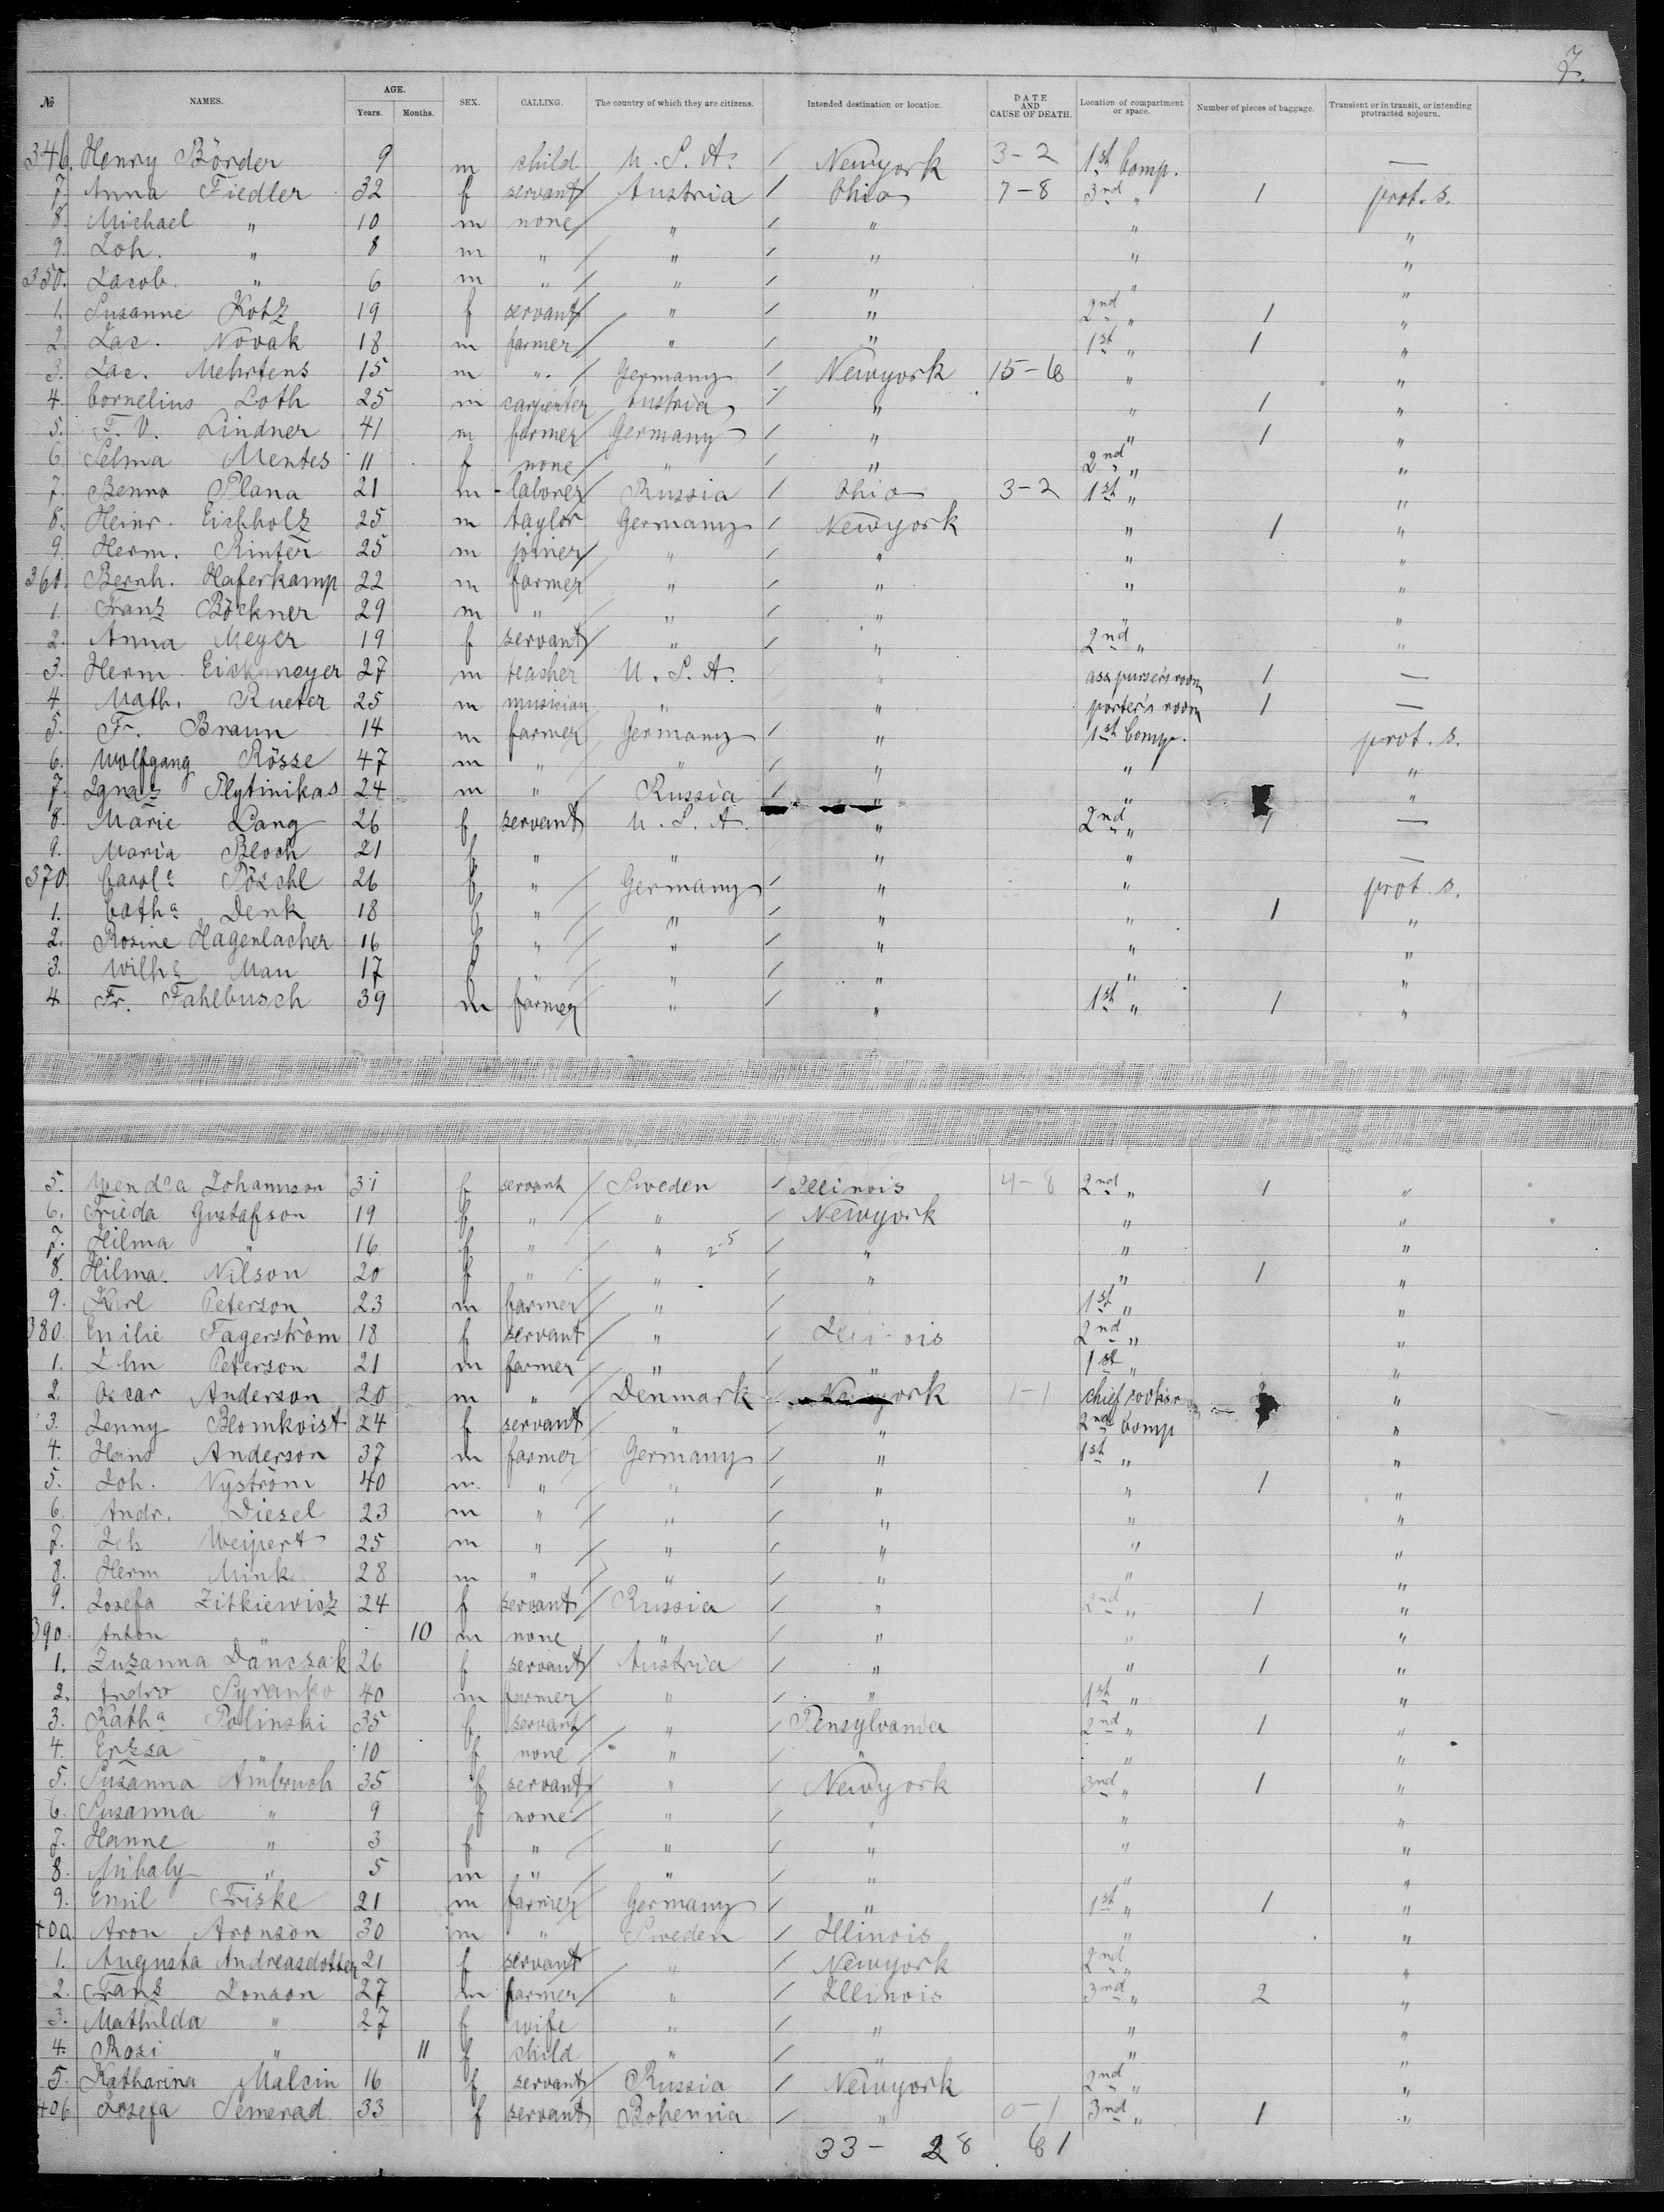 7.
№ NAMES. AGE. Years. Months. SEX. CALLING. The country of which they are citizens. Intended destination or location. DATE AND CAUSE OF DEATH. Location of compartment or space. Number of pieces of baggage. Transient or in transit, or intending protracted sojourn.
346. Henry Börder 9 m child U. S. A. / Newyork 3-2 1st Comp. —
7. Anna Fiedler 32 f servant / Austria / Ohio 7-8 3nd " 1 prot. s.
8. Michael " 10 m none / " / " " "
9. Joh. " 8 m " / " / " " "
350. Jacob. " 6 m " / " / " " "
1. Susanne Kotz 19 f servant / " / " 2nd " 1 "
2. Jac. Novak 18 m farmer / " / " 1st " 1 "
3. Jac. Mehrtens 15 m " Germany / Newyork 15-6 " "
4. Cornelius Loth 25 m carpenter Austria / " " 1 "
5. F. V. Lindner 41 m farmer Germany / " " 1 "
6. Selma Mentes 11 f none / " / " 2nd " "
7. Benno Plana 21 m laborer Russia / Ohio 3-2 1st " "
8. Heinr. Eichholz 25 m taylor Germany / Newyork " 1 "
9. Herm. Rinter 25 m joiner / " / " " "
360. Bernh. Haferkamp 22 m farmer " / " " "
1. Franz Böckner 29 m " / " / " " "
2. Anna Meyer 19 f servant / " / " 2nd " "
3. Herm. Eickmeyer 27 m teacher U. S. A. " ass purser's room 1 —
4 Math. Rueter 25 m musician " " porter's room 1 —
5. Fr. Braun 14 m farmer Germany / " 1st Comp. prot. s.
6. Wolfgang Rösse 47 m " / " / " " "
7. Ignatz Plytinikas 24 m " / Russia / " " "
8. Marie Lang 26 f servant U. S. A. " 2nd " 1 —
9. Maria Bloch 21 f " / " " " —
370 Carole Pöschl 26 f " / Germany / " " prot. s.
1. Catha Denk 18 f " / " / " " 1 "
2. Rosine Hagenlacher 16 f " / " / " " "
3. Wilhe Mau 17 f " / " / " " "
4 Fr. Fahlbusch 39 m farmer " / " 1st " 1 "
5. Johannson 31 f servant / Sweden / Illinois 4-8 2nd " 1 "
6. Frieda Gustafson 19 f " / " / Newyork " "
7. Hilma " 16 f " / " 2-5 / " " "
8. Hilma. Nilson 20 f " / " / " " 1 "
9. Karl Peterson 23 m farmer / " / 1st " "
380. Emilie Fagerström 18 f servant / " / Illinois 2nd " "
1. John Peterson 21 m farmer / " / " 1st " "
2. Oscar Anderson 20 m " / Denmark Newyork 1-1 chief "
3. Jenny Blomkvist 24 f servant " / " 2nd Comp "
4. Hans Anderson 37 m farmer / Germany / " 1st " "
5. Joh. Nyström 40 m " / " / " " 1 "
6. Andr. Diesel 23 m " / " / " " "
7. Joh Weipert 25 m " / " / " " "
8. Herm Mink 28 m " / " / " " "
9. Josefa Zitkiewicz 24 f servant / Russia / " 2nd " 1 "
390. Anton " 10 m none " / " " "
1. Zuzanna Danczak 26 f servant / Austria / " " 1 "
2. Andro Syranko 40 m farmer / " / " 1st " "
3. Katha Polinski 35 f servant / " / Pensylvania 2nd " 1 "
4. Erzsa " 10 f none / " / " " "
5. Susanna Ambruch 35 f servant / " / Newyork 3nd " 1 "
6. Susanna " 9 f none / " / " " "
7. Hanne " 3 f " / " / " " "
8. Mihaly " 5 m " / " / " " "
9. Emil Friske 21 m farmer Germany / " 1st " 1 "
400 Aron Aronson 30 m " Sweden / Illinois " "
1. Augusta Andreasdotter 21 f servant " / Newyork 2nd " "
2. Franz Jonson 27 m farmer / " / Illinois 3nd " 2 "
3. Mathilda " 27 f wife " / " " "
4. Rosi " 11 f child " / " " "
5. Katharina Malcin 16 f servant / Russia / Newyork 2nd " "
406 Josefa Semerad 33 f servant Bohemia / " 0-1 3nd " 1 "
33- 28 61